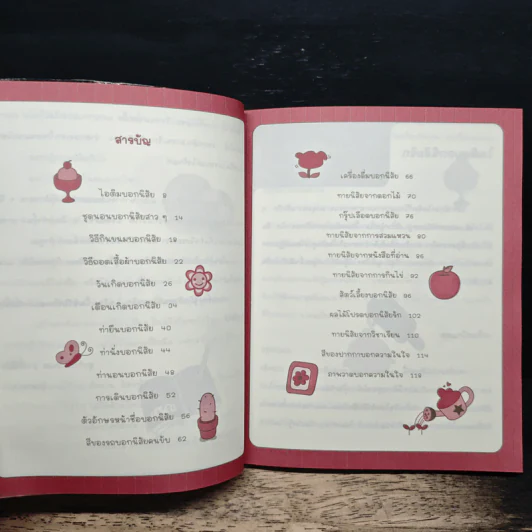 สารบัญ
ไอติมบอกนิสัย 9
ชุดนอนบอกนิสัยสาว ๆ 14
วิธีกินขนมบอกนิสัย 19
วิธีถอดเสื้อผ้าบอกนิสัย 22
วันเกิดบอกนิสัย 26
เดือนเกิดบอกนิสัย 34
ท่ายืนบอกนิสัย 40
ท่านั่งบอกนิสัย 44
ท่านอนบอกนิสัย 49
การเดินบอกนิสัย 52
ตัวอักษรหน้าชื่อบอกนิสัย 56
สีของรถบอกนิสัยคนขับ 62
เครื่องดื่มบอกนิสัย 66
ทายนิสัยจากดอกไม้ 70
กรุ๊ปเลือดบอกนิสัย 76
ทายนิสัยจากการสวมแหวน 80
ทายนิสัยจากหนังสือที่อ่าน 85
ทายนิสัยจากการกินไข่ 92
สัตว์เลี้ยงบอกนิสัย 96
ผลไม้โปรดบอกนิสัยรัก 102
ทายนิสัยจากวิชาเรียน 110
สีของปากกาบอกความในใจ 114
ภาพวาดบอกความในใจ 118